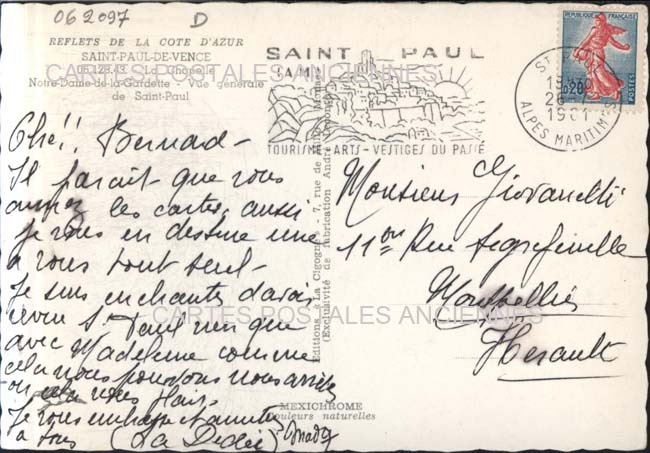 062097 D
REFLETS DE LA COTE D'AZUR
SAINT-PAUL-DE-VENCE
06.128.43 - La Chapelle
Notre-Dame-de-la-Gardette - Vue générale
de Saint-Paul
SAINT PAUL
A.M.
TOURISME - ARTS - VESTIGES DU PASSÉ
REPUBLIQUE FRANÇAISE
0,20
POSTES
1961
ALPES MARITIMES
CARTES POSTALES ANCIENNES
Cher Bernad -
Il parait que vous
aimez les cartes, aussi
je vous en destine une
a vous tout seul -
Je suis enchantée d'avoir
revu St Paul rien que
avec Madeleine comme
cela nous pouvons nous arrêter
ou cela nous plait.
Je vous embrasse
a tous (La Dédée)
Editions "La Cigogne" - 7, rue de
(Exclusivité de fabrication André
Monsieur Giovanelli
11 Rue
Montpellier
Herault
CARTES POSTALES ANCIENNES
MEXICHROME
Couleurs naturelles